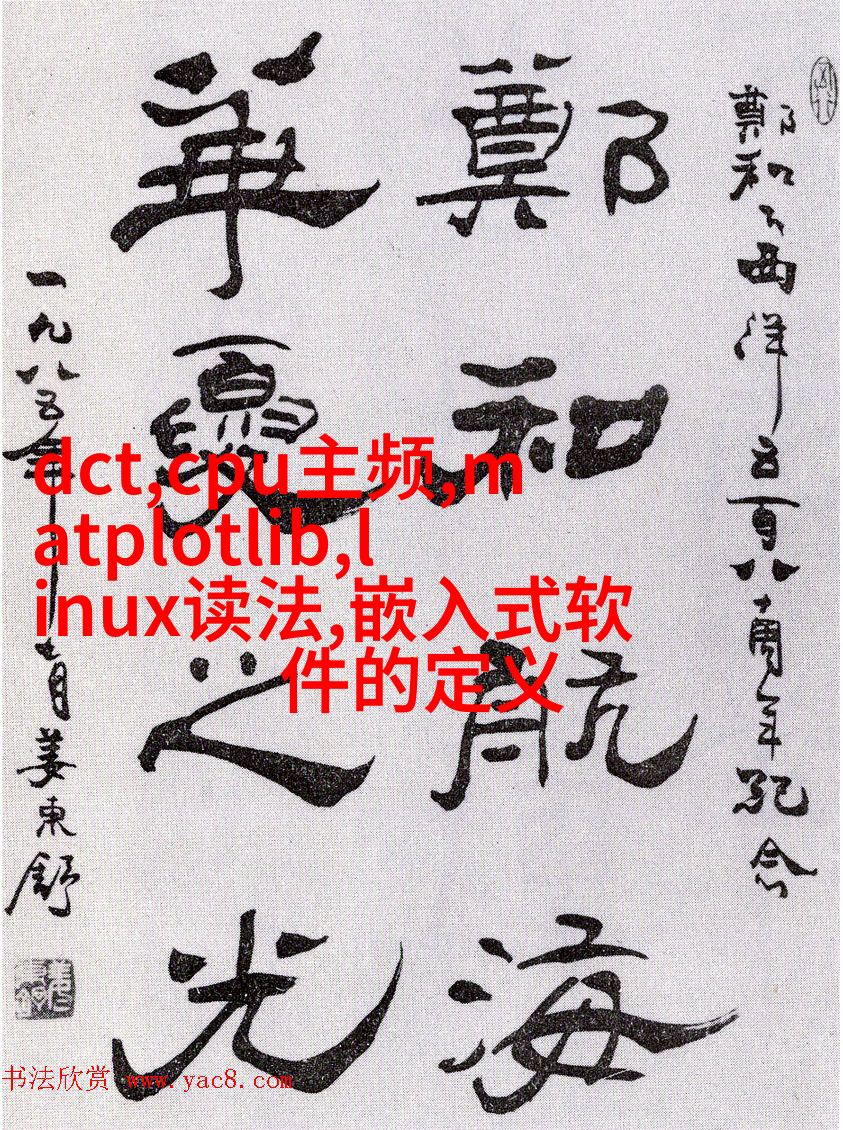 鄭和下西洋五百八十周年紀念
鄭和航海
華夏之光
一九八五年十一月姜東舒
dct,cpu主频,m
atplotlib,l
inux读法,嵌入式软
件的定义
书法欣赏 www.yac8.com